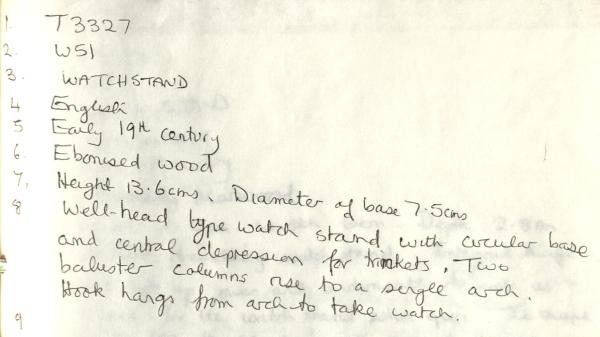 1. T3327
2. W51
3. WATCHSTAND
4 English
5 Early 19th century
6. Ebonised wood
7, Height 13.6cms. Diameter of base 7.5cms
8 Well-head type watch stand with circular base
and central depression for trinkets. Two
baluster columns rise to a single arch.
Hook hangs from arch to take watch.
9